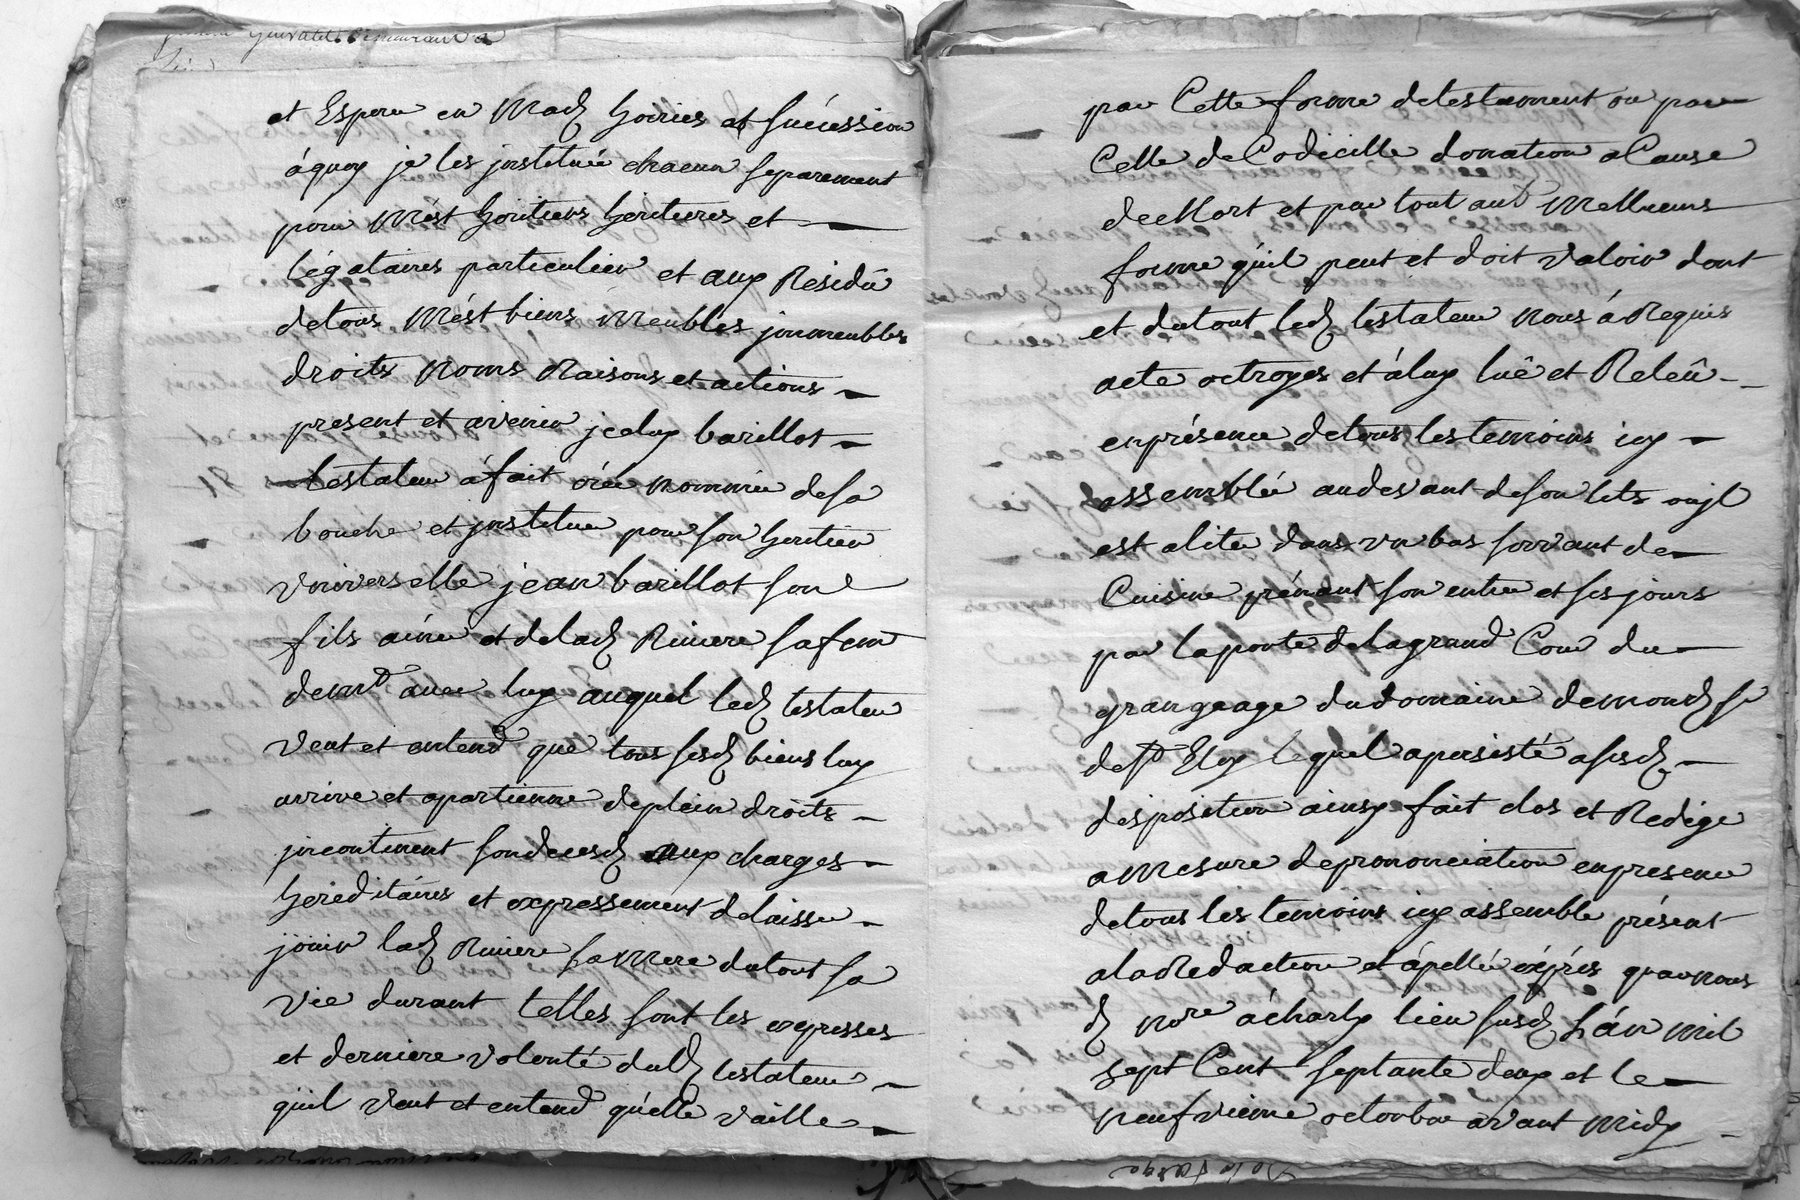 et Espere en Madḙ hoiries et succession
áquoy je les jnstituée chacun separement
pour Mést héritiers heritieres et
légataires particulier et aux Residû
detous Mést biens Meubles jmmeubles
droits Noms Raisons et actions
present et avenir jceluy barillot
testateur á fait crée nommée desa
bouche et jnstituer pour son heritier
Vniverselle jean barillot son
fils ainé et delad Riviere sa fem
demt avec luy auquel led testateur
veut et entend que tous sesd biens luy
arrive et apartienne deplein droits
jncontinent sondecesd aux charges
héréditaires et expressement delaisser
joüir lad Riviere sa Mere dutout sa
vie durant telles sont les expresses
et derniere volonté dud testateur
quil veut et entend quélle vaille
par Cette forme detestament ou par
Celle deCodicille donation aCause
deMort et par tout aut Mellieure
forme quil peut et doit valoir dont
et dutout led testateur nous á Requis
acte octroyes et áluy luê et Releû
enprésence detous les temoins icy
assemblée audevant deson lits oujl
est aliter dans vn bas servant de
Cuisine prénant son entre et ses jours
par laporte delagrand Cour du
grangeage dudomaine demond sr
de St Eloy lequel apersisté asesd
disposition ainsy fait clos et Redige
aMesure deprononciation enpresence
detous les temoins icy assemble présent
alaRedaction et ápellée exprés pravnous
d nore ácharly lieu susd Lán mil
sept Cent septante deux et le
neufvieme octobre avant Midy